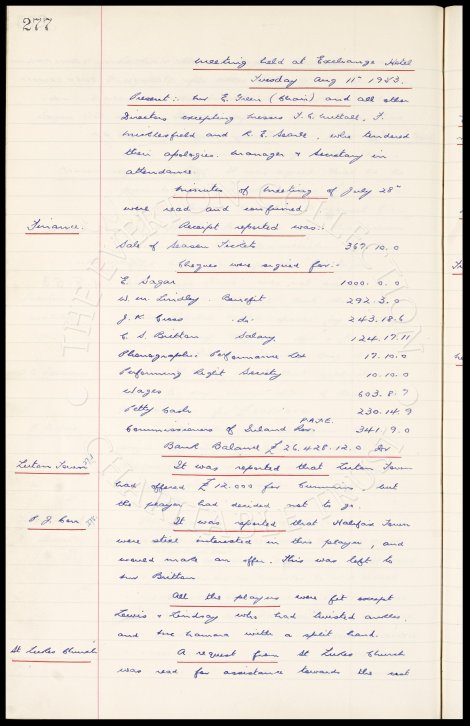 277
Meeting held at Exchange Hotel
Tuesday Aug 11th 1953.
Present:. Mr E. Green (Chair) and all other
Directors excepting Messrs T. C. Nuttall, F.
Micklesfield and R. E. Searle, who tendered
their apologies. Manager & Secretary in
attendance.
Minutes of Meeting of July 28th
were read and confirmed
Finance. Receipt reported was:-
Sale of Season Tickets 367.10.0
Cheques were signed for:-
E. Sagar 1000.0.0
W. M. Lindley. Benefit 292.3.0
J. K. Cross .do. 243.18.6
C. S. Britton Salary 124.17.11
Phonographic Performance Ltd 17.10.0
Performing Right Society 10.10.0
Wages 603.8.7
Petty Cash 230.14.9
Commissioners of Inland Rev. P.A.Y.E. 341.9.0
Bank Balance £26.428.12.0 Dr
Luton Town It was reported that Luton Town
had offered £12.000 for Cummins, but
the player had decided not to go.
It was reported that Halifax Town
were still interested in this player, and
would make an offer. This was left to
Mr Britton
All the players were fit except
Lewis & Lindsay who had twisted ankles,
and with a split hand.
St Lukes Church A request from St Lukes Church
was read for assistance towards the cost
THE EVERTON COLLECTION